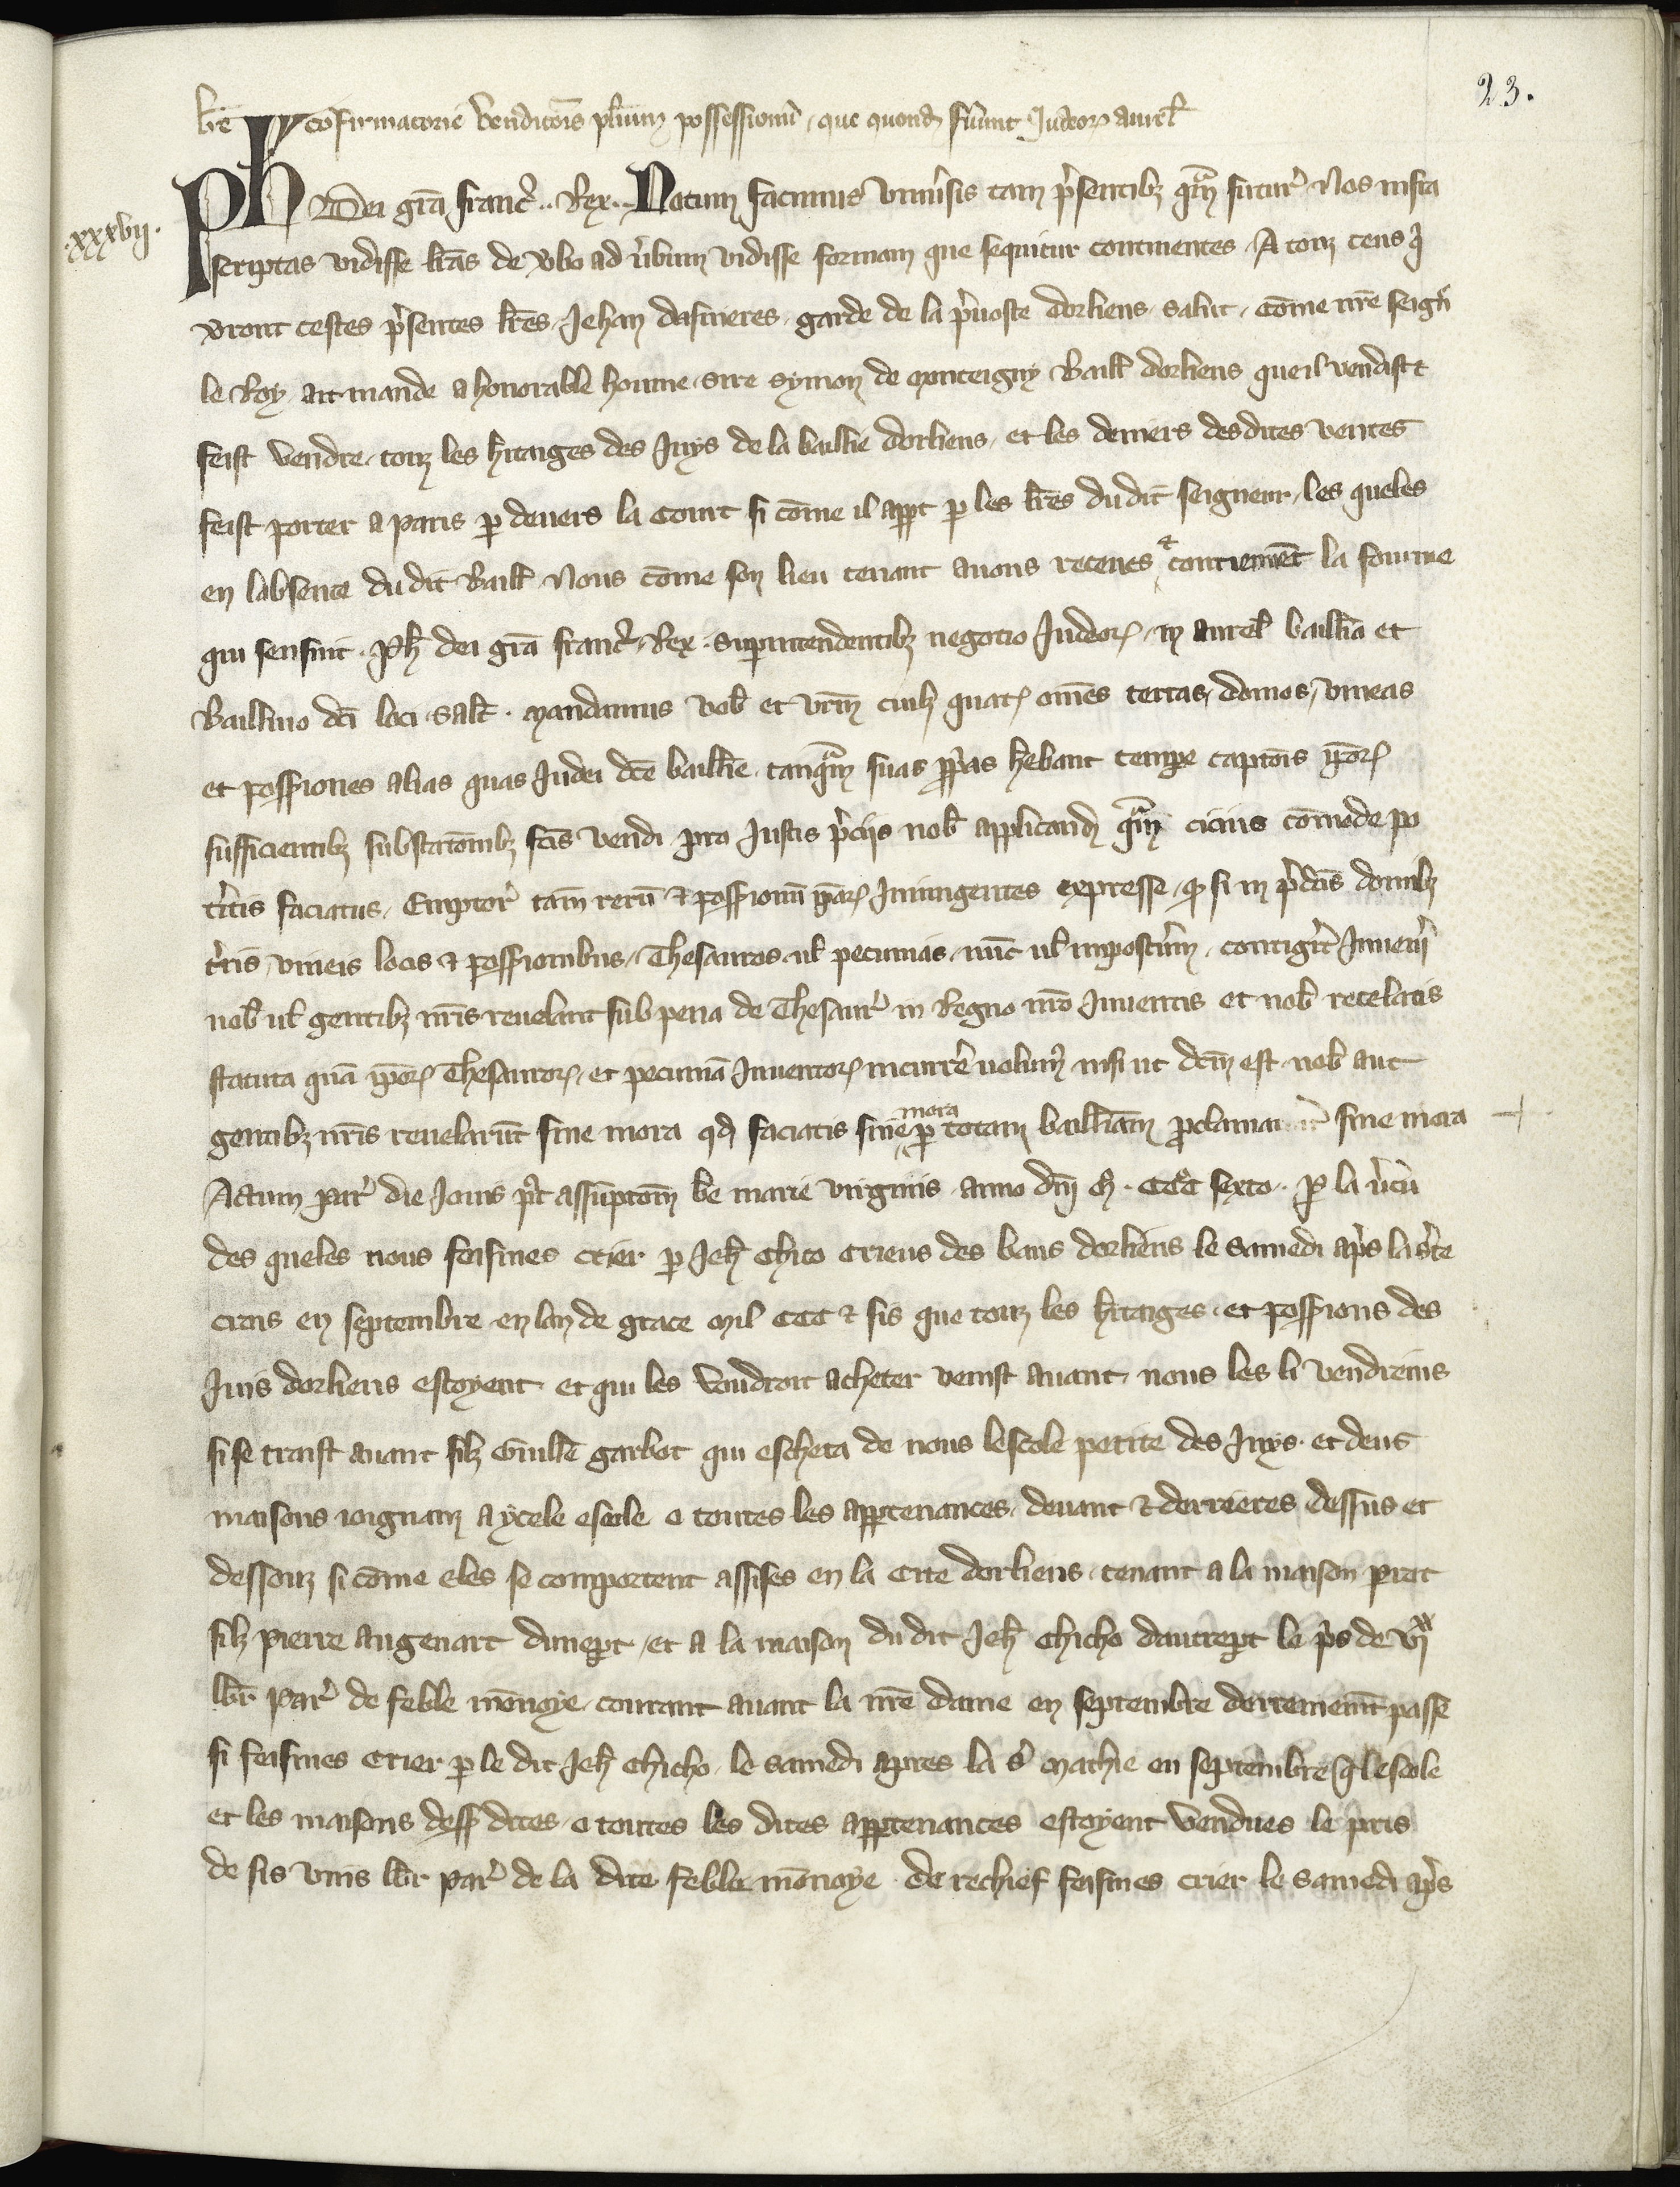 23.
lr̄e ꝯfirmatorie vendicōis plˀium possessionū, que quond fuˀunt Judeoꝝ aurelˀ
.xxxvij.
Ph Dei grā francˀ. Rex. Notum facimus vniuˀsis tam pˀsentibꝫ qᵃm futurˀ Nos infra
scriptas vidisse lr̄as de vˀbo ad vˀbum vidisse formam que sequitur continentes. A touz ceus q̄
vˀront cestes pˀsentes lr̄es, Jehan dasnieres, garde de la pˀuoste dorliens, salut, Cōme nr̄e seignˀ
le Roy, ait mande a honorable houme, sire Symon de Monteigny Baillˀ dorliens que il vendist ⁊
feist vendre, touz les hˀitaiges des Juys de la baillie dorliens, et les deniers desdites ventes
feist porter a Paris ꝑ deuers la Court si cōme il aꝑt ꝑ les lr̄es dudit seigneur, les queles
en labsence dudit Baillˀ Nous cōme son lieu tenant auons receues ⁊ contienēnt la somme
qui sensuit. Ph dei grā francˀ Rex. suꝑintendentibꝫ negocio Judeoꝝ in aurelˀ baillia et
Baillino dc̄i loci salt̄. Mandamus vobˀ et vr̄m cuilˀꝫ quatꝰ om̄es terras, domos, vineas
et possiones alias quas Judei dc̄e baillie tanqᵃm suas ꝓpˀas hˀebant tempe capcōis ip̄oꝝ
sufficientibꝫ subhastacōnibꝫ fc̄is vendi pro Justis pˀcijs nobˀ applicandˀ qᵃm cicius cōmode po
tˀitis faciatus, Emptorˀ tam rerū ⁊ possionū ip̄aꝝ Iniungentes expresse, ꝙ si in pˀdc̄is domibꝫ
tˀris, vineis locis ⁊ possionibus, Thesauros, ul̄ pecunias, nūc ul̄ imposteˀm, contigˀit Inuenˀi
nobˀ ul̄ gentibꝫ nr̄is reuelent sub pena de Thesaurˀ in Regno nr̄o Inuentis et nobˀ recelatis
statuta quā ip̄oꝝ Thesauroꝝ, et pecuniā Inuentoꝝ incurrˀe volumꝰ nisi ut dc̄m est nobˀ aut
gentibꝫ nr̄is reuelarūt sine mora qd̄ faciatis sine mora ꝑ totam bailliam ꝓclamari sine mora
Actum Parˀ die Jouis pˀt assūptōm be Marie virginis anno dn̄i M. CCCᵒ sexto. P la vˀtu
des queles nous feismes crier ꝑ Jehˀ Chico Crieus des bans dorliens le samedi apˀs la sˀte
crois en septembre en lan de grace Mil CCC ⁊ sis que touz les hˀitaiges, et possions des
Juis dorliens estoyent et qui les voudroit acheter venist auant nous les li vendreins
si se traist auant filz Guillē garbot qui escheta de nous lescole petite des Juys. et deus
maisons ioignanz a ycele escole o toutes les aꝑtenances, deuant ⁊ derrieres dessus et
dessouz si cōme eles se comportent assises en la Cite dorliens, tenant a la maison prat
filz Pierre angenart dunept, et a la maison du dit Jehˀ Chicho dautrept le pˀs de vijˣˣ
lb̄r Parˀ de feble mōnoye, courant auant la nr̄e dame en septembre derrenemēt passe
si feismes Crier ꝑ le dit Jehˀ Chicho, le samedi apres la sˀ Mathie en septembre q̄ lescole
et les maisons dessˀ dites, o toutes les dites aꝑtenances estoyent vendues le pris
de sis vins lb̄r parˀ de la dite feble mōnoye de rechief feismes crier le samedi apˀs